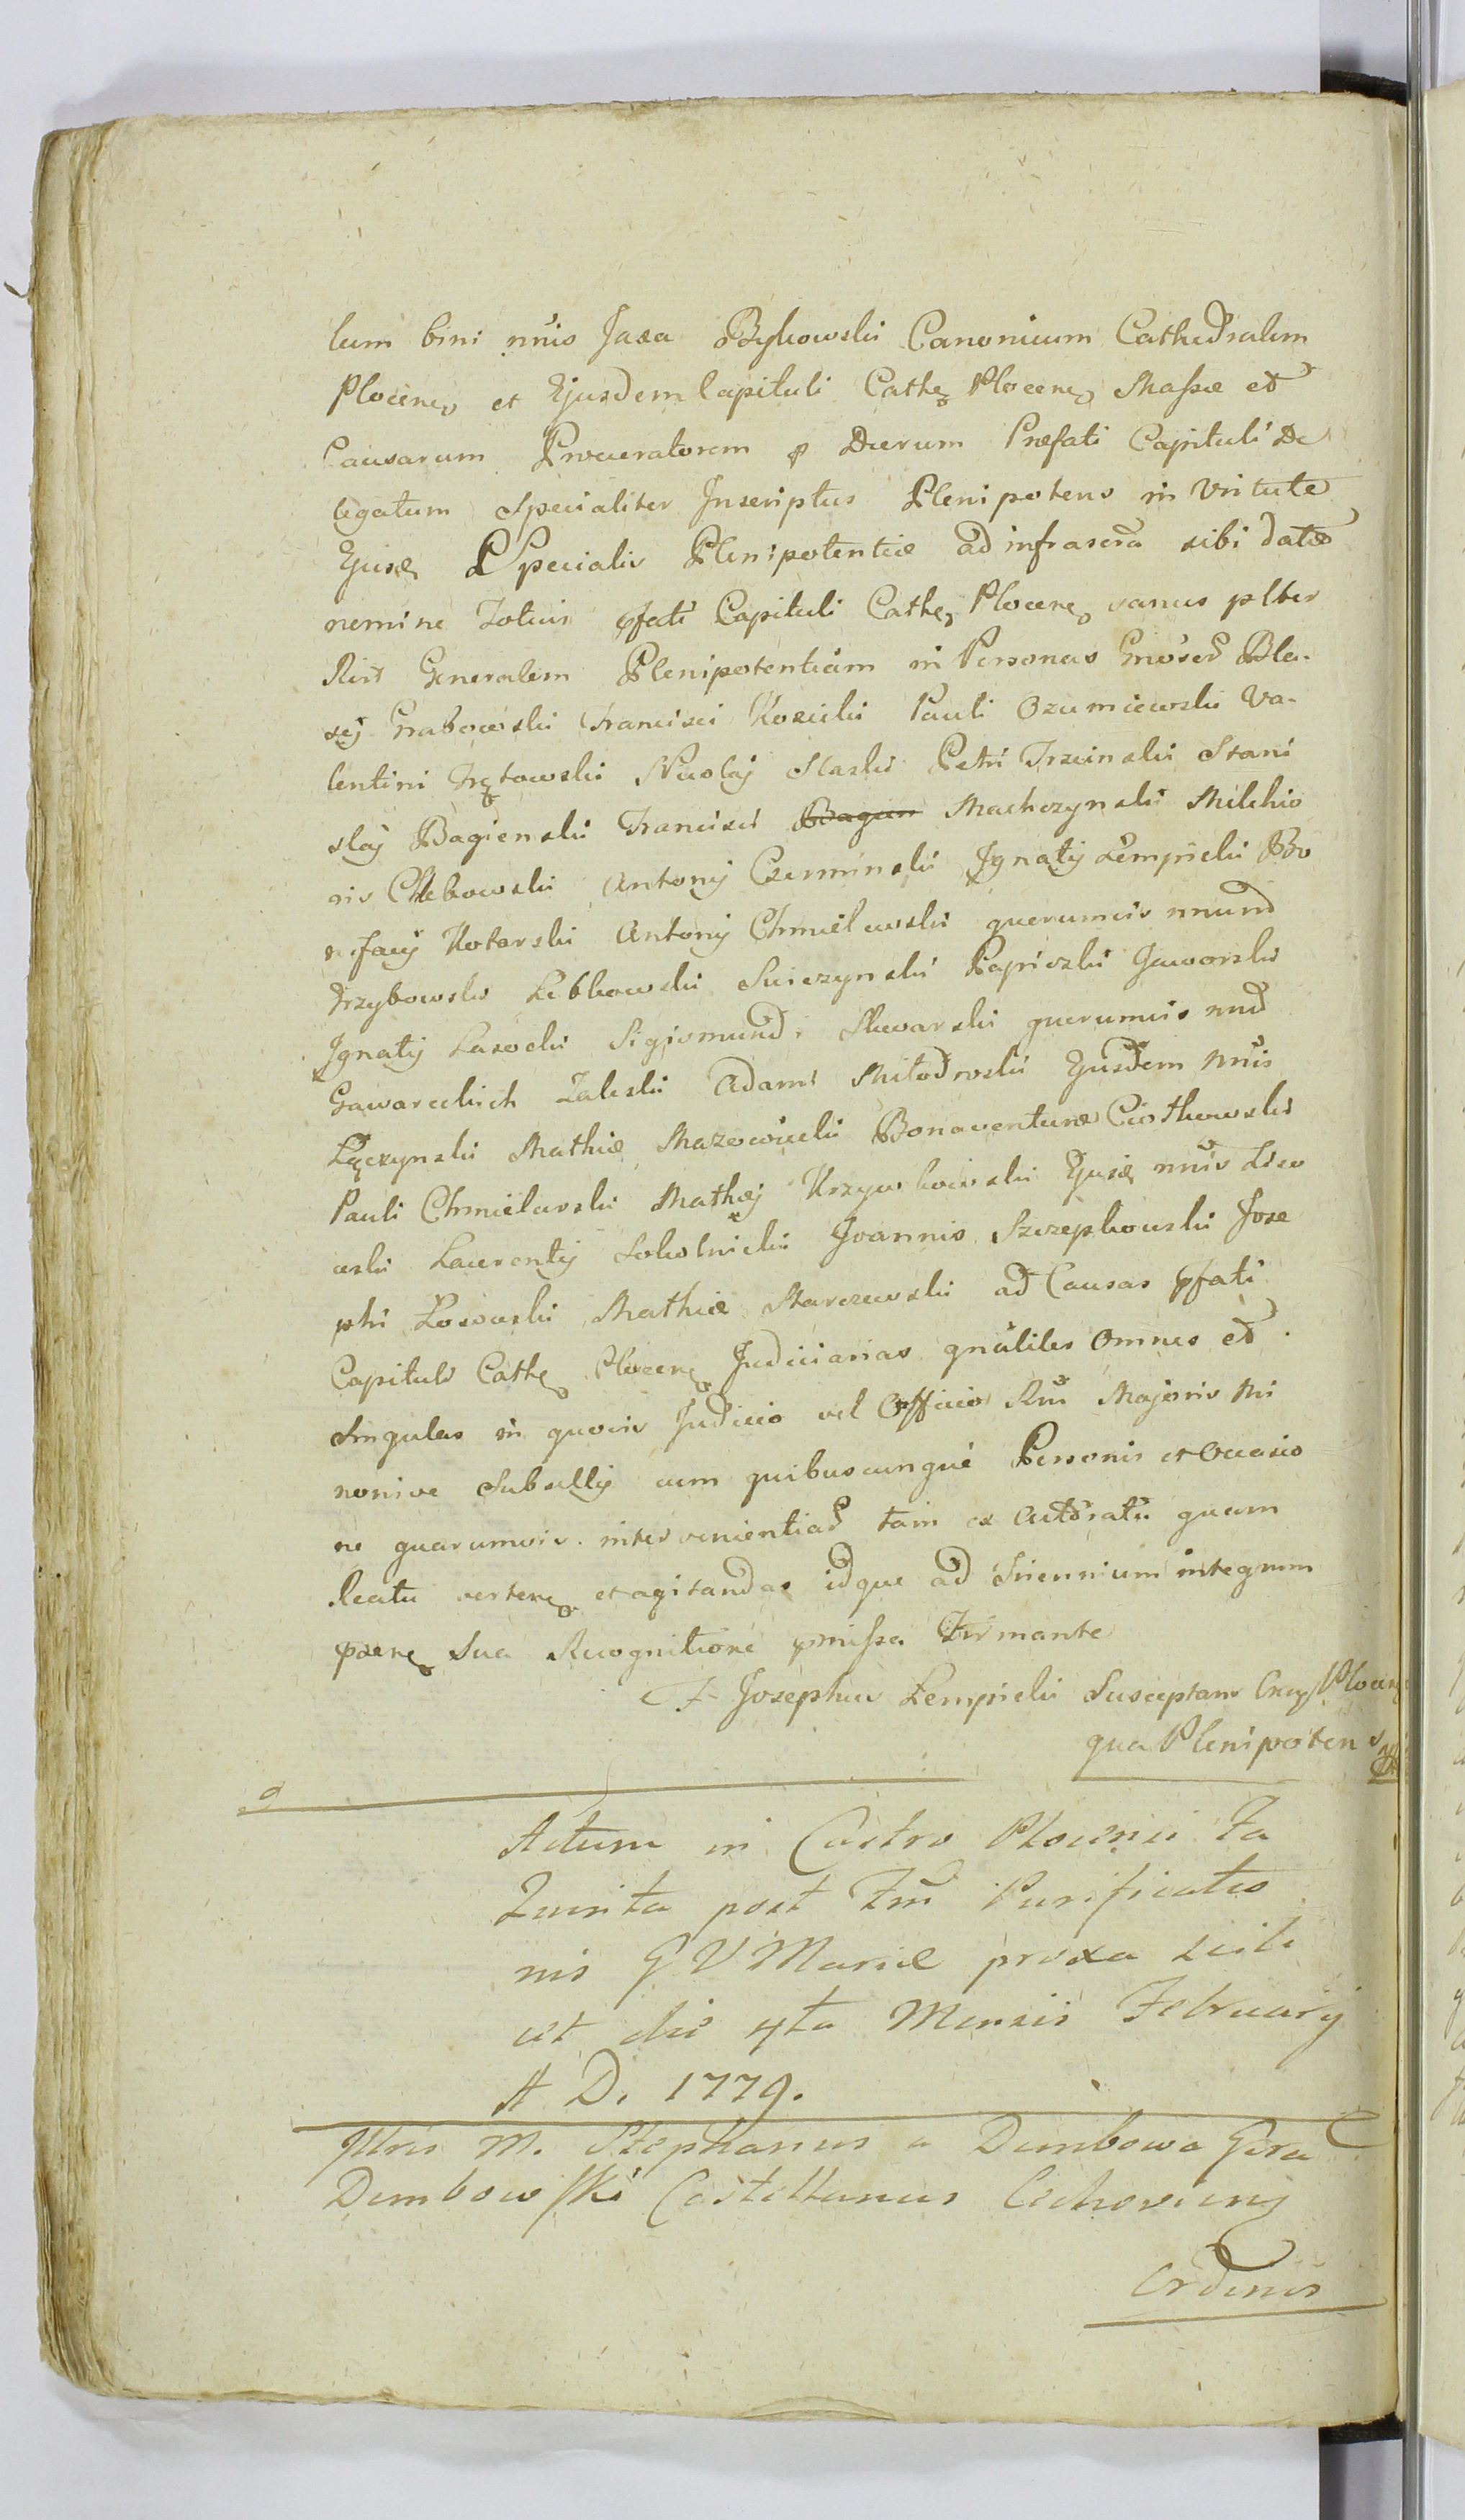 lum bini nnis Jaxa Bykowski Canonicum Cathedralem
Plocen et Ejusdem Capituli Cathe Plocen Massæ et
Causarum Procuratorem p Duerum Præfati Capituli De
legatum Specialiter Inscriptus Plenipotens in Virtute
Ejusd Specialis Plenipotentiæ ad infrascra sibi datæ
nomine Totius pfati Capituli Cathe Plocen sanus plter
Rist Generalem Plenipotentiam in Personas Gnoser Bla-
sij Grabowski Francisci Kozicki Pauli Ozumiewski Va-
lentini Trętowski Nicolaj Slaski Petri Trzcinski Stani
slaj Bagienski Francisci Bagien Machczynski Melchio
ris Chlebowski Antonij Czerminski Ignatij Łempicki Bo
nifacij Kotarski Antonij Chmielewski quorumvis nnund
Grzybowski Lebkowski Swiezynski Rapiczki Jaworski
Ignatij Lasocki Sigismundi Skwarski quorumvis nnd
Gawareckich Zaleski Adami Miłodroski Ejusdem nnis
Łęczynski Mathiæ Mazowiecki Bonaventuræ Ciotkowski
Pauli Chmielewski Mathæj Krzywkowski Ejusd nnis Liso
wski Laurentij Sokolnicki Joannis Szczepkowski Jose
phi Łosowski Mathiæ Starczewski ad Causas pfati
Capituli Cathe Plocen Judiciarias gnaliter Omnes et
Singulas in quovis Judicio vel Officio Rni Majoris Mi
norisve Subsellij cum quibuscunque Personis et Occasio
ne quarumvis intervenientiad tam ex Actoratu quam
Reatu verten et agitandas idque ad Triennium integrum
psen Sua Recognitione pmissa Firmante
F Josephus Łempicki Susceptans Plocen
qua Plenipotens
Actum in Castro Plocensi Fa
Quinta post Fm Purificatio
nis G V Mariæ proxa scili
cet die 4ta Mensis Februarij
A D. 1779.
Illris M. Stephanus a Dembowa Gora
Dembowski Castellanus Czechovien
Ordinis